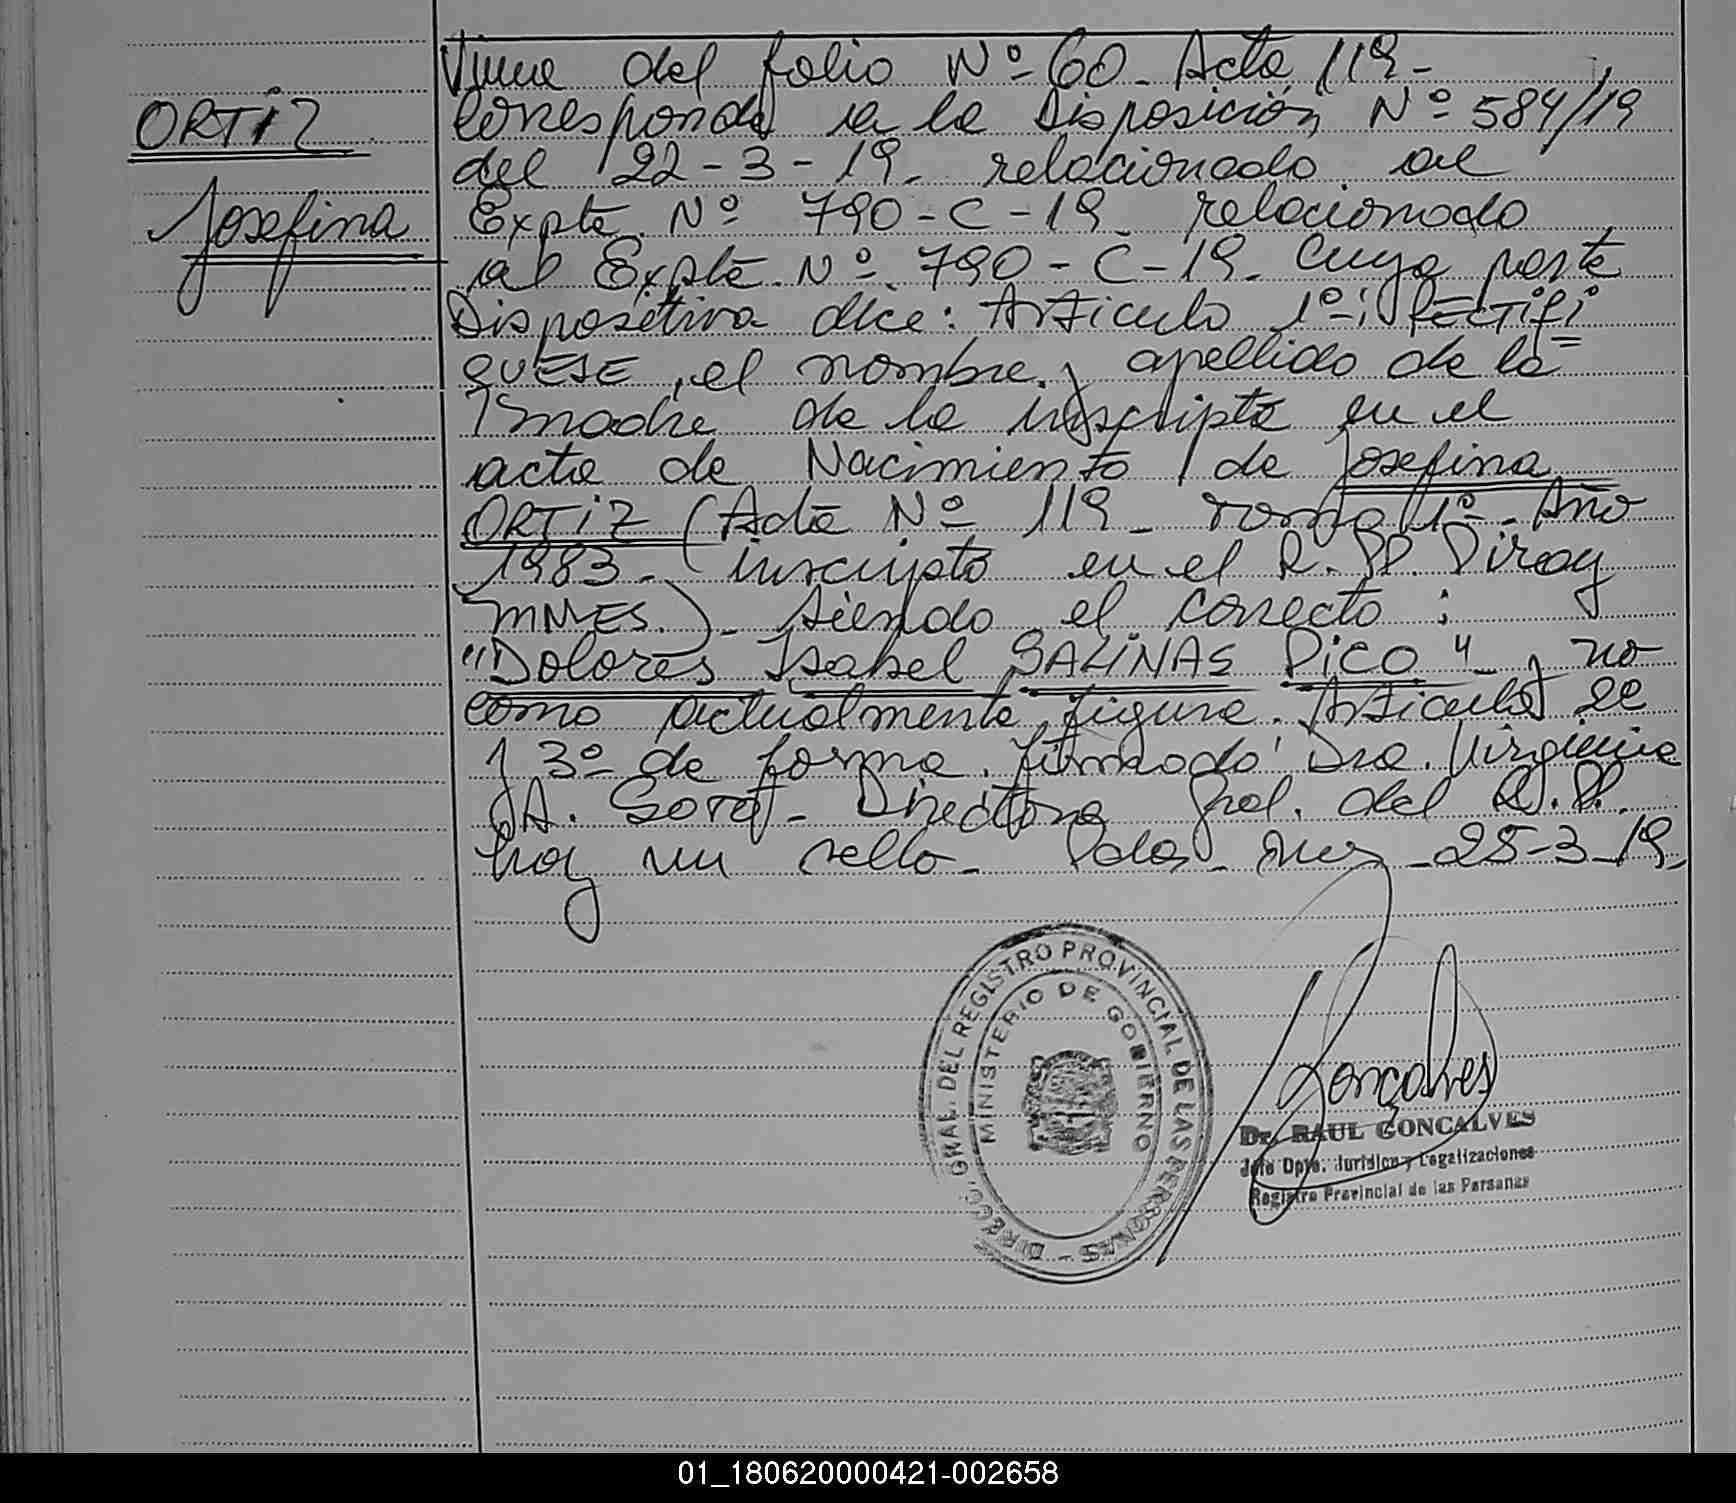 ORTiZ
Josefina
Viene del folio Nº 60. Acta 119-
Corresponde a la Disposición Nº 584/19
del 22-3-19. relacionado al
Expte. Nº 790-C-19 relacionado
al Expte. Nº 790-C-19. Cuya parte
Dispositiva dice: Articulo 1º: RECTiFi
QUESE, el nombre y apellido de la
madre de la inscripta en el
acta de Nacimiento de Josefina
ORTiZ (Acta Nº 119- Tomo 1º- Año
1983- inscripto en el R.P.P. Piray
MNES.)- siendo el correcto:
"Dolores Isabel SALiNAS PiCO" y no
como actualmente figura. Articulo 2º
y 3º de forma. firmado Dra. Virginia
A. Soro- Directora Gral. del R.P.
hay un sello- Pdas- Mnes- 25-3-19-
DIRECC. GRAL. DEL REGISTRO PROVINCIAL DE LAS PERSONAS -
MINISTERIO DE GOBIERNO
Goncalves
Dr. RAUL GONCALVES
Jefe Dpto. Jurídico y Legalizaciones
Registro Provincial de las Personas
01_180620000421-002658